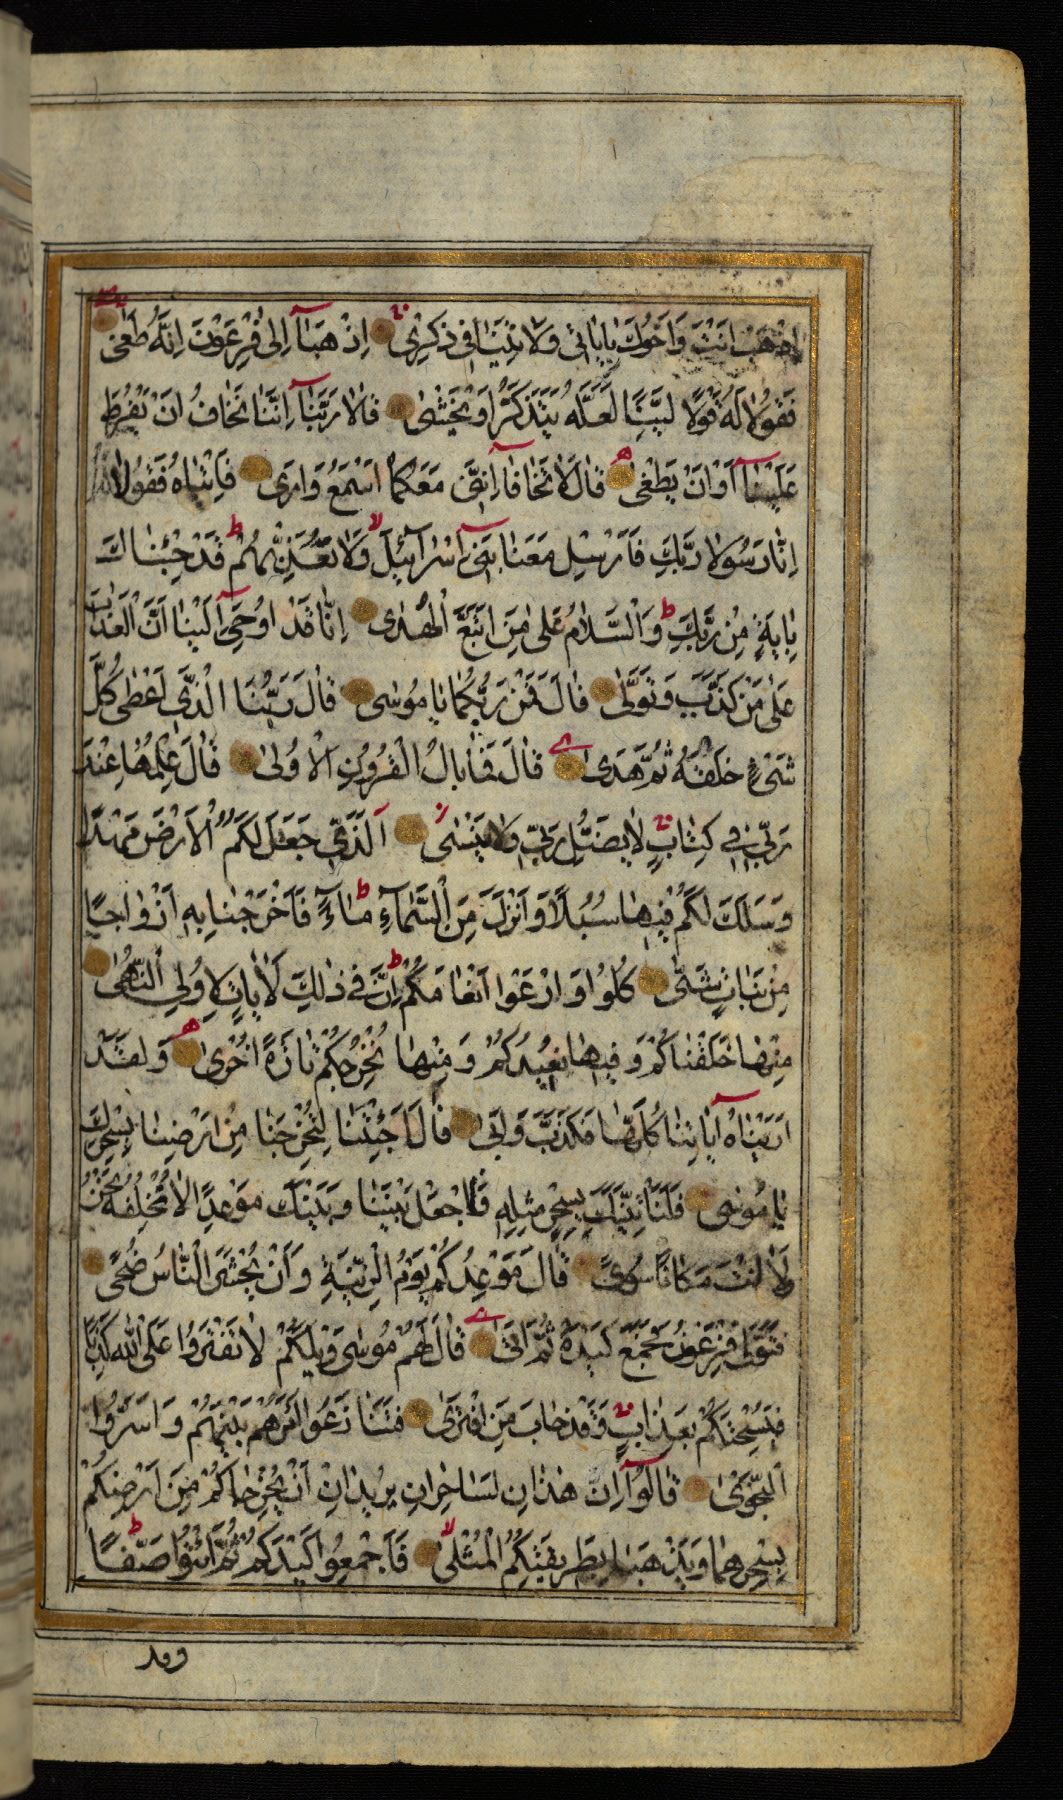 اِذْهَبْ اَنْتَ وَاَخُوكَ بِاٰيَاتٖي وَلَا تَنِيَا فٖي ذِكْرٖي اِذْهَبَآ اِلٰى فِرْعَوْنَ اِنَّهُ طَغٰى
فَقُولَا لَهُ قَوْلًا لَيِّنًا لَعَلَّهُ يَتَذَكَّرُ اَوْ يَخْشٰى قَالَا رَبَّنَآ اِنَّنَا نَخَافُ اَنْ يَفْرُطَ
عَلَيْنَآ اَوْ اَنْ يَطْغٰى قَالَ لَا تَخَافَآ اِنَّنٖي مَعَكُمَا اَسْمَعُ وَاَرٰى فَاْتِيَاهُ فَقُولَآ
اِنَّا رَسُولَا رَبِّكَ فَاَرْسِلْ مَعَنَا بَنٖيٓ اِسْرَآئٖلَ وَلَا تُعَذِّبْهُمْ قَدْ جِئْنَاكَ
بِاٰيَةٍ مِنْ رَبِّكَ وَالسَّلَامُ عَلٰى مَنِ اتَّبَعَ الْهُدٰى اِنَّا قَدْ اُوحِيَ اِلَيْنَآ اَنَّ الْعَذَابَ
عَلٰى مَنْ كَذَّبَ وَتَوَلّٰى قَالَ فَمَنْ رَبُّكُمَا يَا مُوسٰى قَالَ رَبُّنَا الَّذٖي اَعْطٰى كُلَّ
شَيْءٍ خَلْقَهُ ثُمَّ هَدٰى قَالَ فَمَا بَالُ الْقُرُونِ الْاُولٰى قَالَ عِلْمُهَا عِنْدَ
رَبّٖي فٖي كِتَابٍ لَا يَضِلُّ رَبّٖي وَلَا يَنْسٰى اَلَّذٖي جَعَلَ لَكُمُ الْاَرْضَ مَهْدًا
وَسَلَكَ لَكُمْ فٖيهَا سُبُلًا وَاَنْزَلَ مِنَ السَّمَآءِ مَآءً فَاَخْرَجْنَا بِهِ اَزْوَاجًا
مِنْ نَبَاتٍ شَتّٰى كُلُوا وَارْعَوْا اَنْعَامَكُمْ اِنَّ فٖي ذٰلِكَ لَاٰيَاتٍ لِاُولِي النُّهٰى
مِنْهَا خَلَقْنَاكُمْ وَفٖيهَا نُعٖيدُكُمْ وَمِنْهَا نُخْرِجُكُمْ تَارَةً اُخْرٰى وَلَقَدْ
اَرَيْنَاهُ اٰيَاتِنَا كُلَّهَا فَكَذَّبَ وَاَبٰى قَالَ اَجِئْتَنَا لِتُخْرِجَنَا مِنْ اَرْضِنَا بِسِحْرِكَ
يَا مُوسٰى فَلَنَاْتِيَنَّكَ بِسِحْرٍ مِثْلِهِ فَاجْعَلْ بَيْنَنَا وَبَيْنَكَ مَوْعِدًا لَا نُخْلِفُهُ نَحْنُ
وَلَا اَنْتَ مَكَانًا سُوًى قَالَ مَوْعِدُكُمْ يَوْمُ الزّٖينَةِ وَاَنْ يُحْشَرَ النَّاسُ ضُحًى
فَتَوَلّٰى فِرْعَوْنُ فَجَمَعَ كَيْدَهُ ثُمَّ اَتٰى قَالَ لَهُمْ مُوسٰى وَيْلَكُمْ لَا تَفْتَرُوا عَلَى اللّٰهِ كَذِبًا
فَيُسْحِتَكُمْ بِعَذَابٍ وَقَدْ خَابَ مَنِ افْتَرٰى فَتَنَازَعُوا اَمْرَهُمْ بَيْنَهُمْ وَاَسَرُّوا
النَّجْوٰى قَالُوآ اِنْ هٰذَانِ لَسَاحِرَانِ يُرٖيدَانِ اَنْ يُخْرِجَاكُمْ مِنْ اَرْضِكُمْ
بِسِحْرِهِمَا وَيَذْهَبَا بِطَرٖيقَتِكُمُ الْمُثْلٰى فَاَجْمِعُوا كَيْدَكُمْ ثُمَّ ائْتُوا صَفًّا
وقد